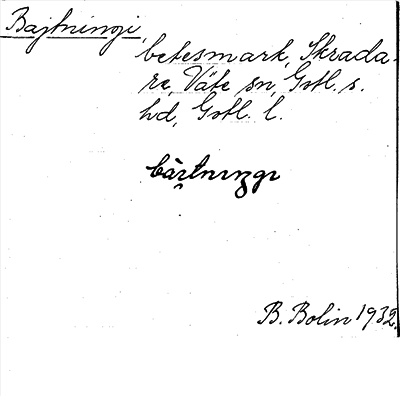 Bajtningi,
betesmark, Skrada-
re, Väte sn, Gotl. s.
hd, Gotl. l.
B. Bolin 1932.